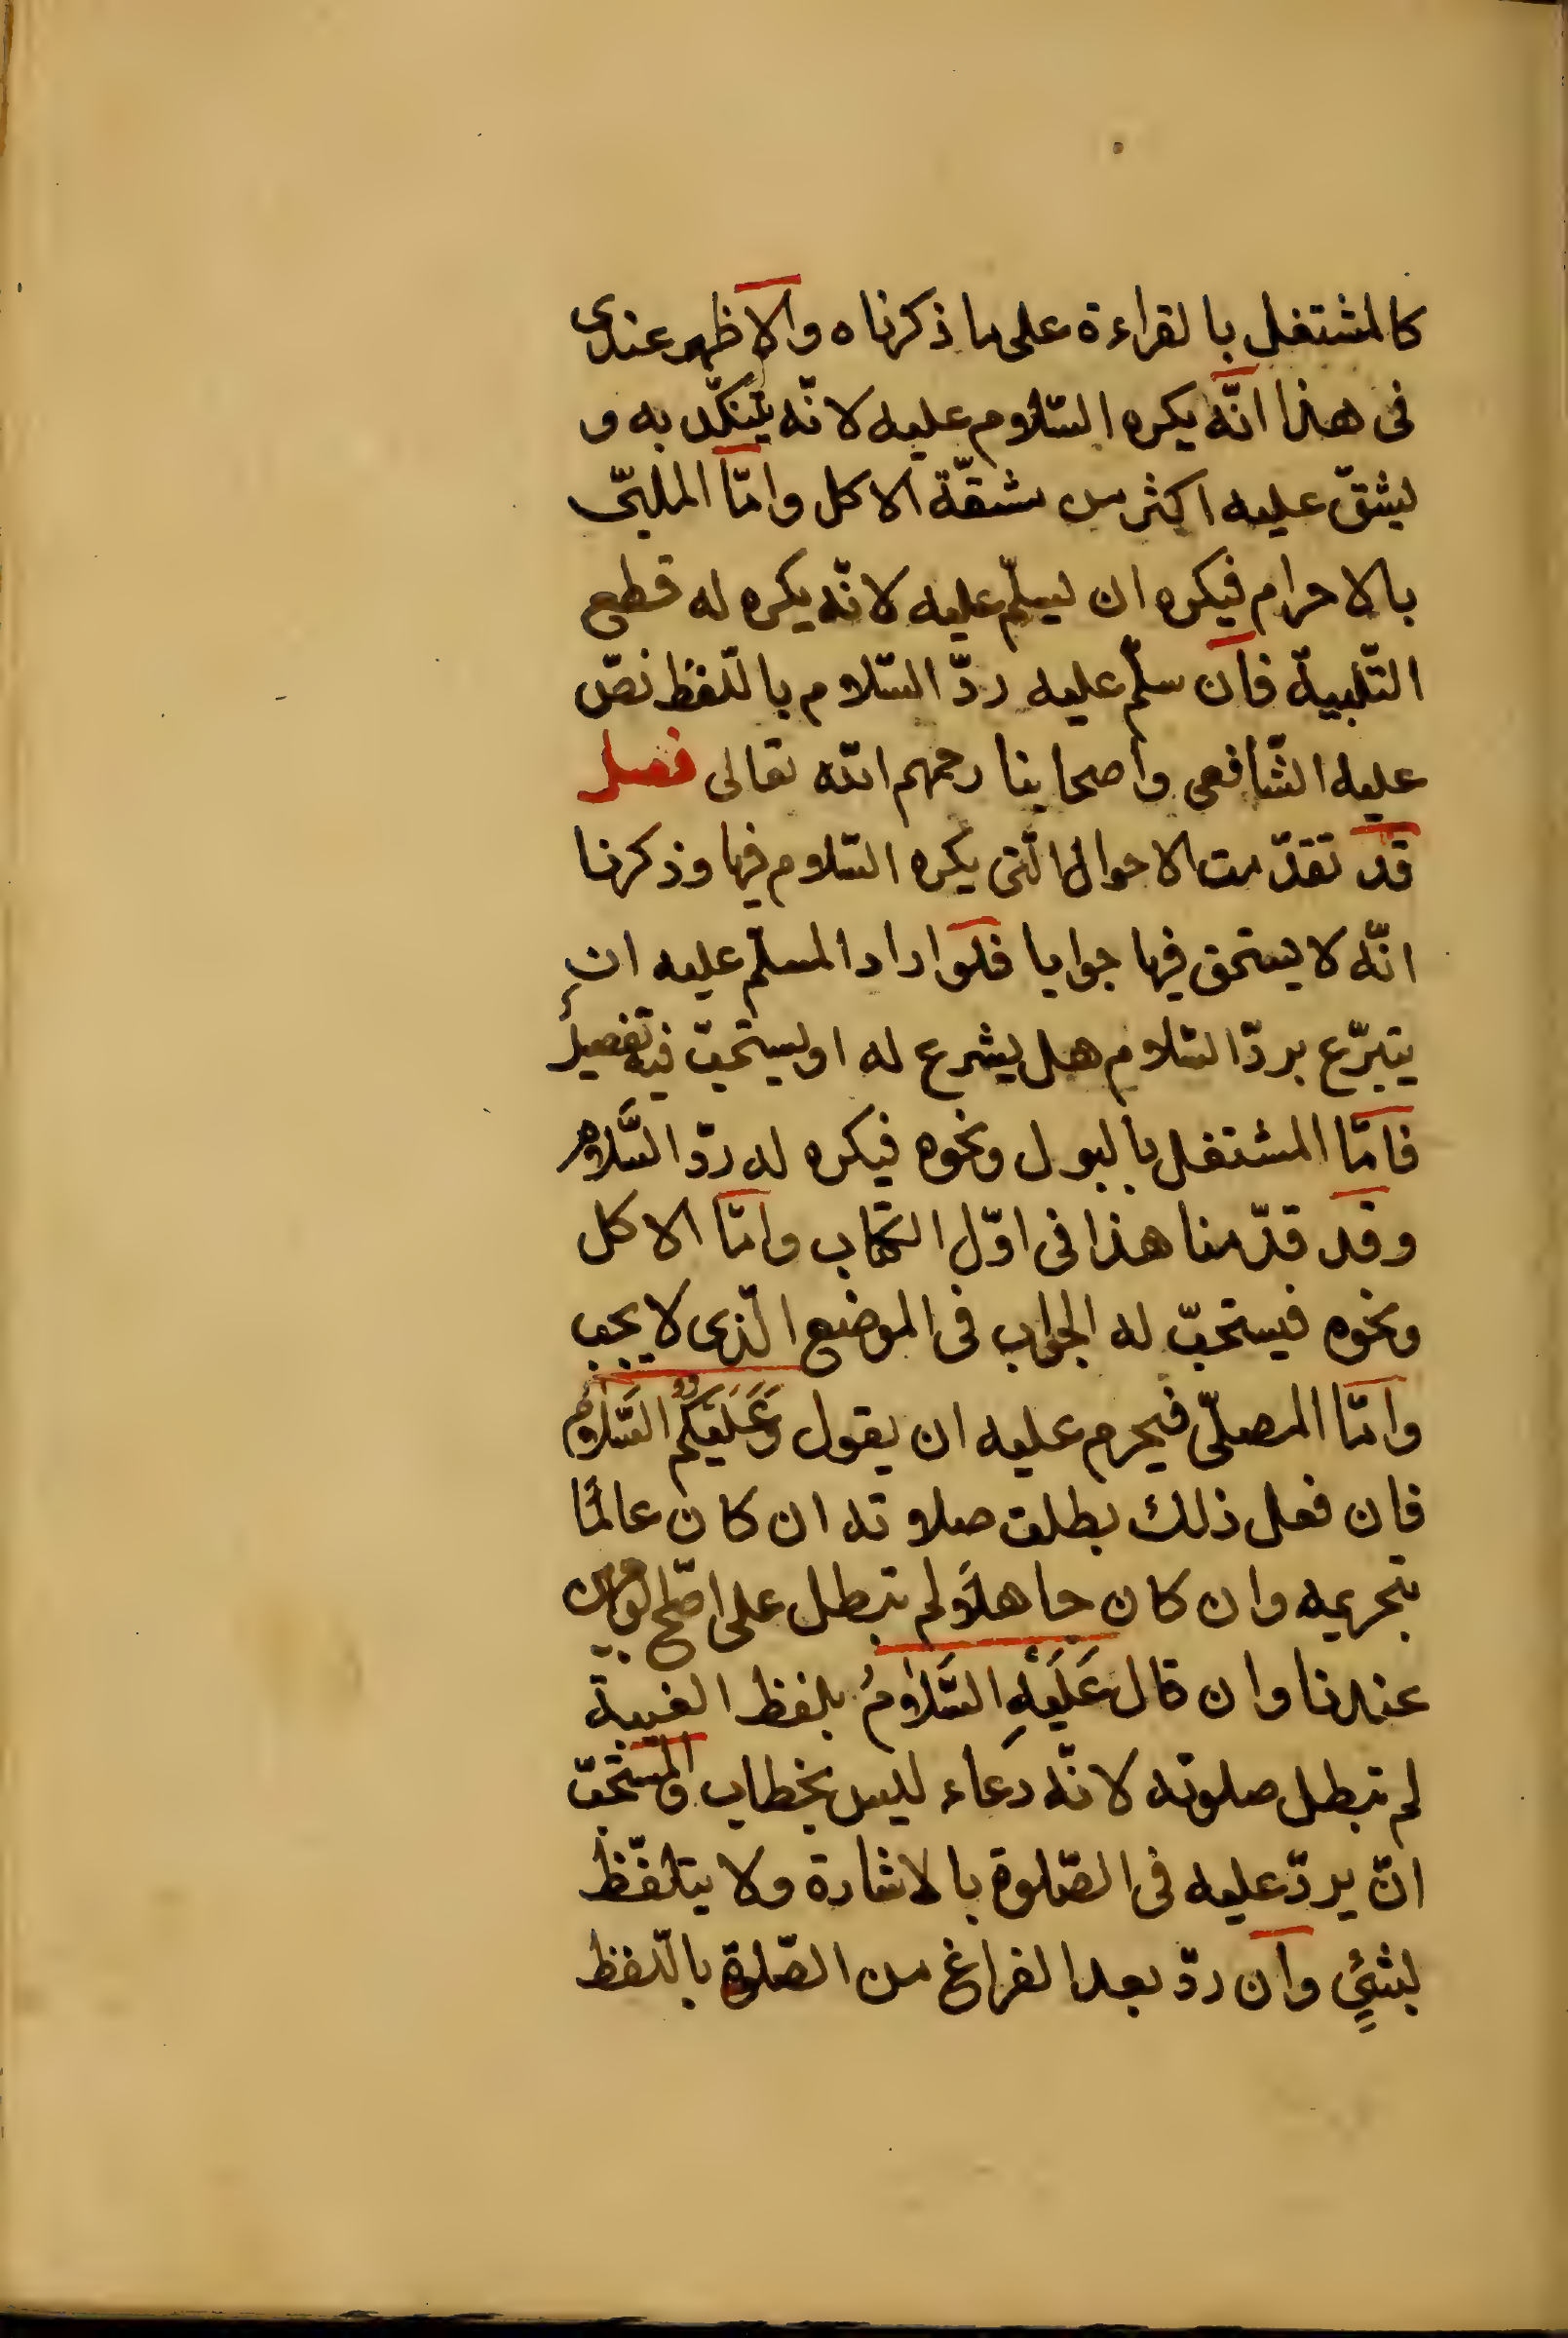 كالمشتغل بالقراءة على ما ذكرناه والاظهر عندى
فى هذا انّه يكره السّلام عليه لانّه يتنكّد به و
يشقّ عليه اكثر من مشقّة الاكل وامّا الملبّى
بالاحرام فيكره ان يسلّم عليه لانّه يكره له قطع
التّلبية فان سلّم عليه ردّ السّلام باللّفظ نصّ
عليه الشّافعى واصحابنا رحمهم الله تعالى فصل
قد تقدّمت الاحوال الّتى يكره السّلام فيها وذكرنا
انّه لا يستحق فيها جوابا فلو اراد المسلّم عليه ان
يتبرّع بردّ السّلام هل يشرع له او يستحبّ فيه تفصيلٌ
فامّا المشتغل بالبول ونحوه فيكره له ردّ السَّلام
وقد قدّمنا هذا فى اوّل الكتاب وامّا الاكل
ونحوه فيستحبّ له الجواب فى الموضع الّذى لا يجب
وامّا المصلّى فيحرم عليه ان يقول وَعَلَيْكُمُ السَّلَامُ
فان فعل ذلك بطلت صلاته ان كان عالمًا
بتحريمه وان كان جاهلًا لم تبطل على اصّح الوجهين
عندنا وان قال عَلَيْهِ السَّلَامُ بلفظ الغيبة
لم تبطل صلوته لانّه دعاء ليس بخطاب والمستحبّ
انّ يردّ عليه فى الصّلوة بالاشارة ولا يتلفّظ
بشئٍ وان ردّ بعد الفراغ من الصّلوة باللّفظ